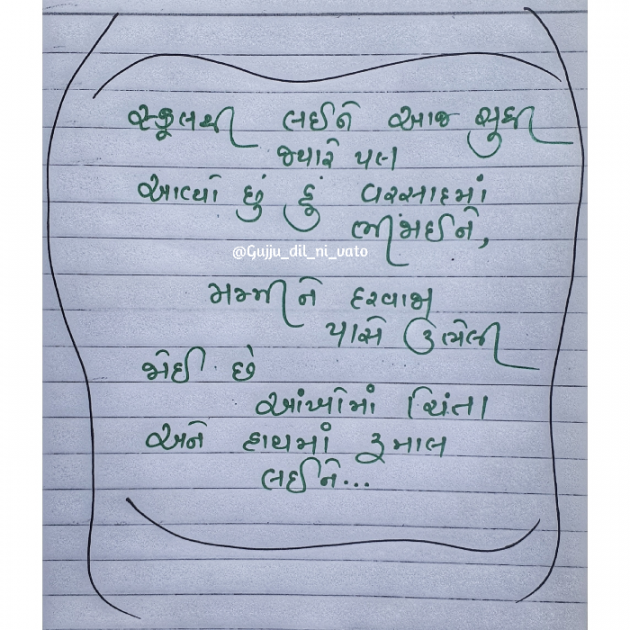 સ્કૂલથી લઈને આજ સુધી
જ્યારે પલ
આવ્યો છું હું વરસાદમાં
ભીંજાઈને,
@Gujju_dil_ni_vato
મમ્મીને દરવાજા
પાસે ઉભેલી
જોઈ છે
આંખોમાં ચિંતા
અને હાથમાં રૂમાલ
લઈને...